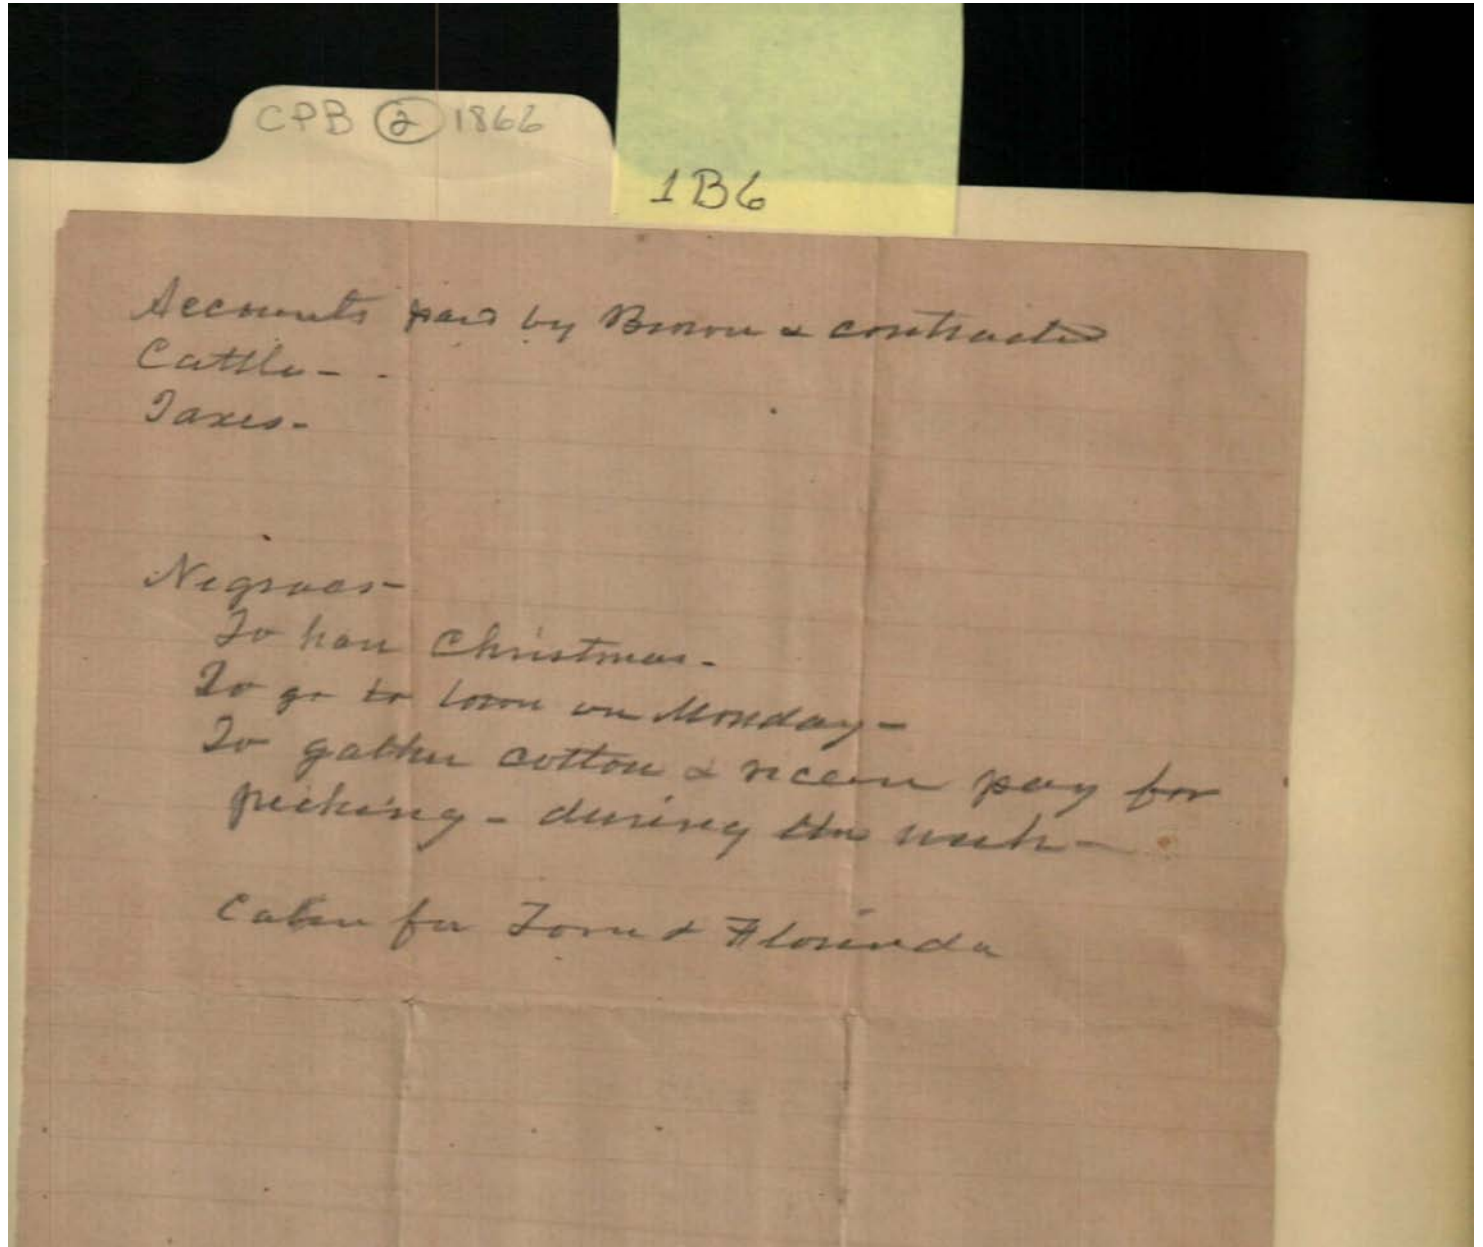 CPB 2 1866
1B6
Accounts paid by Brown & contracted
Cattle - -
Taxes -
Negroes -
To have Christmas -
To go to town on Monday -
To gather cotton & receive pay for
picking - during the week -
Cabin for Tom & Florinda